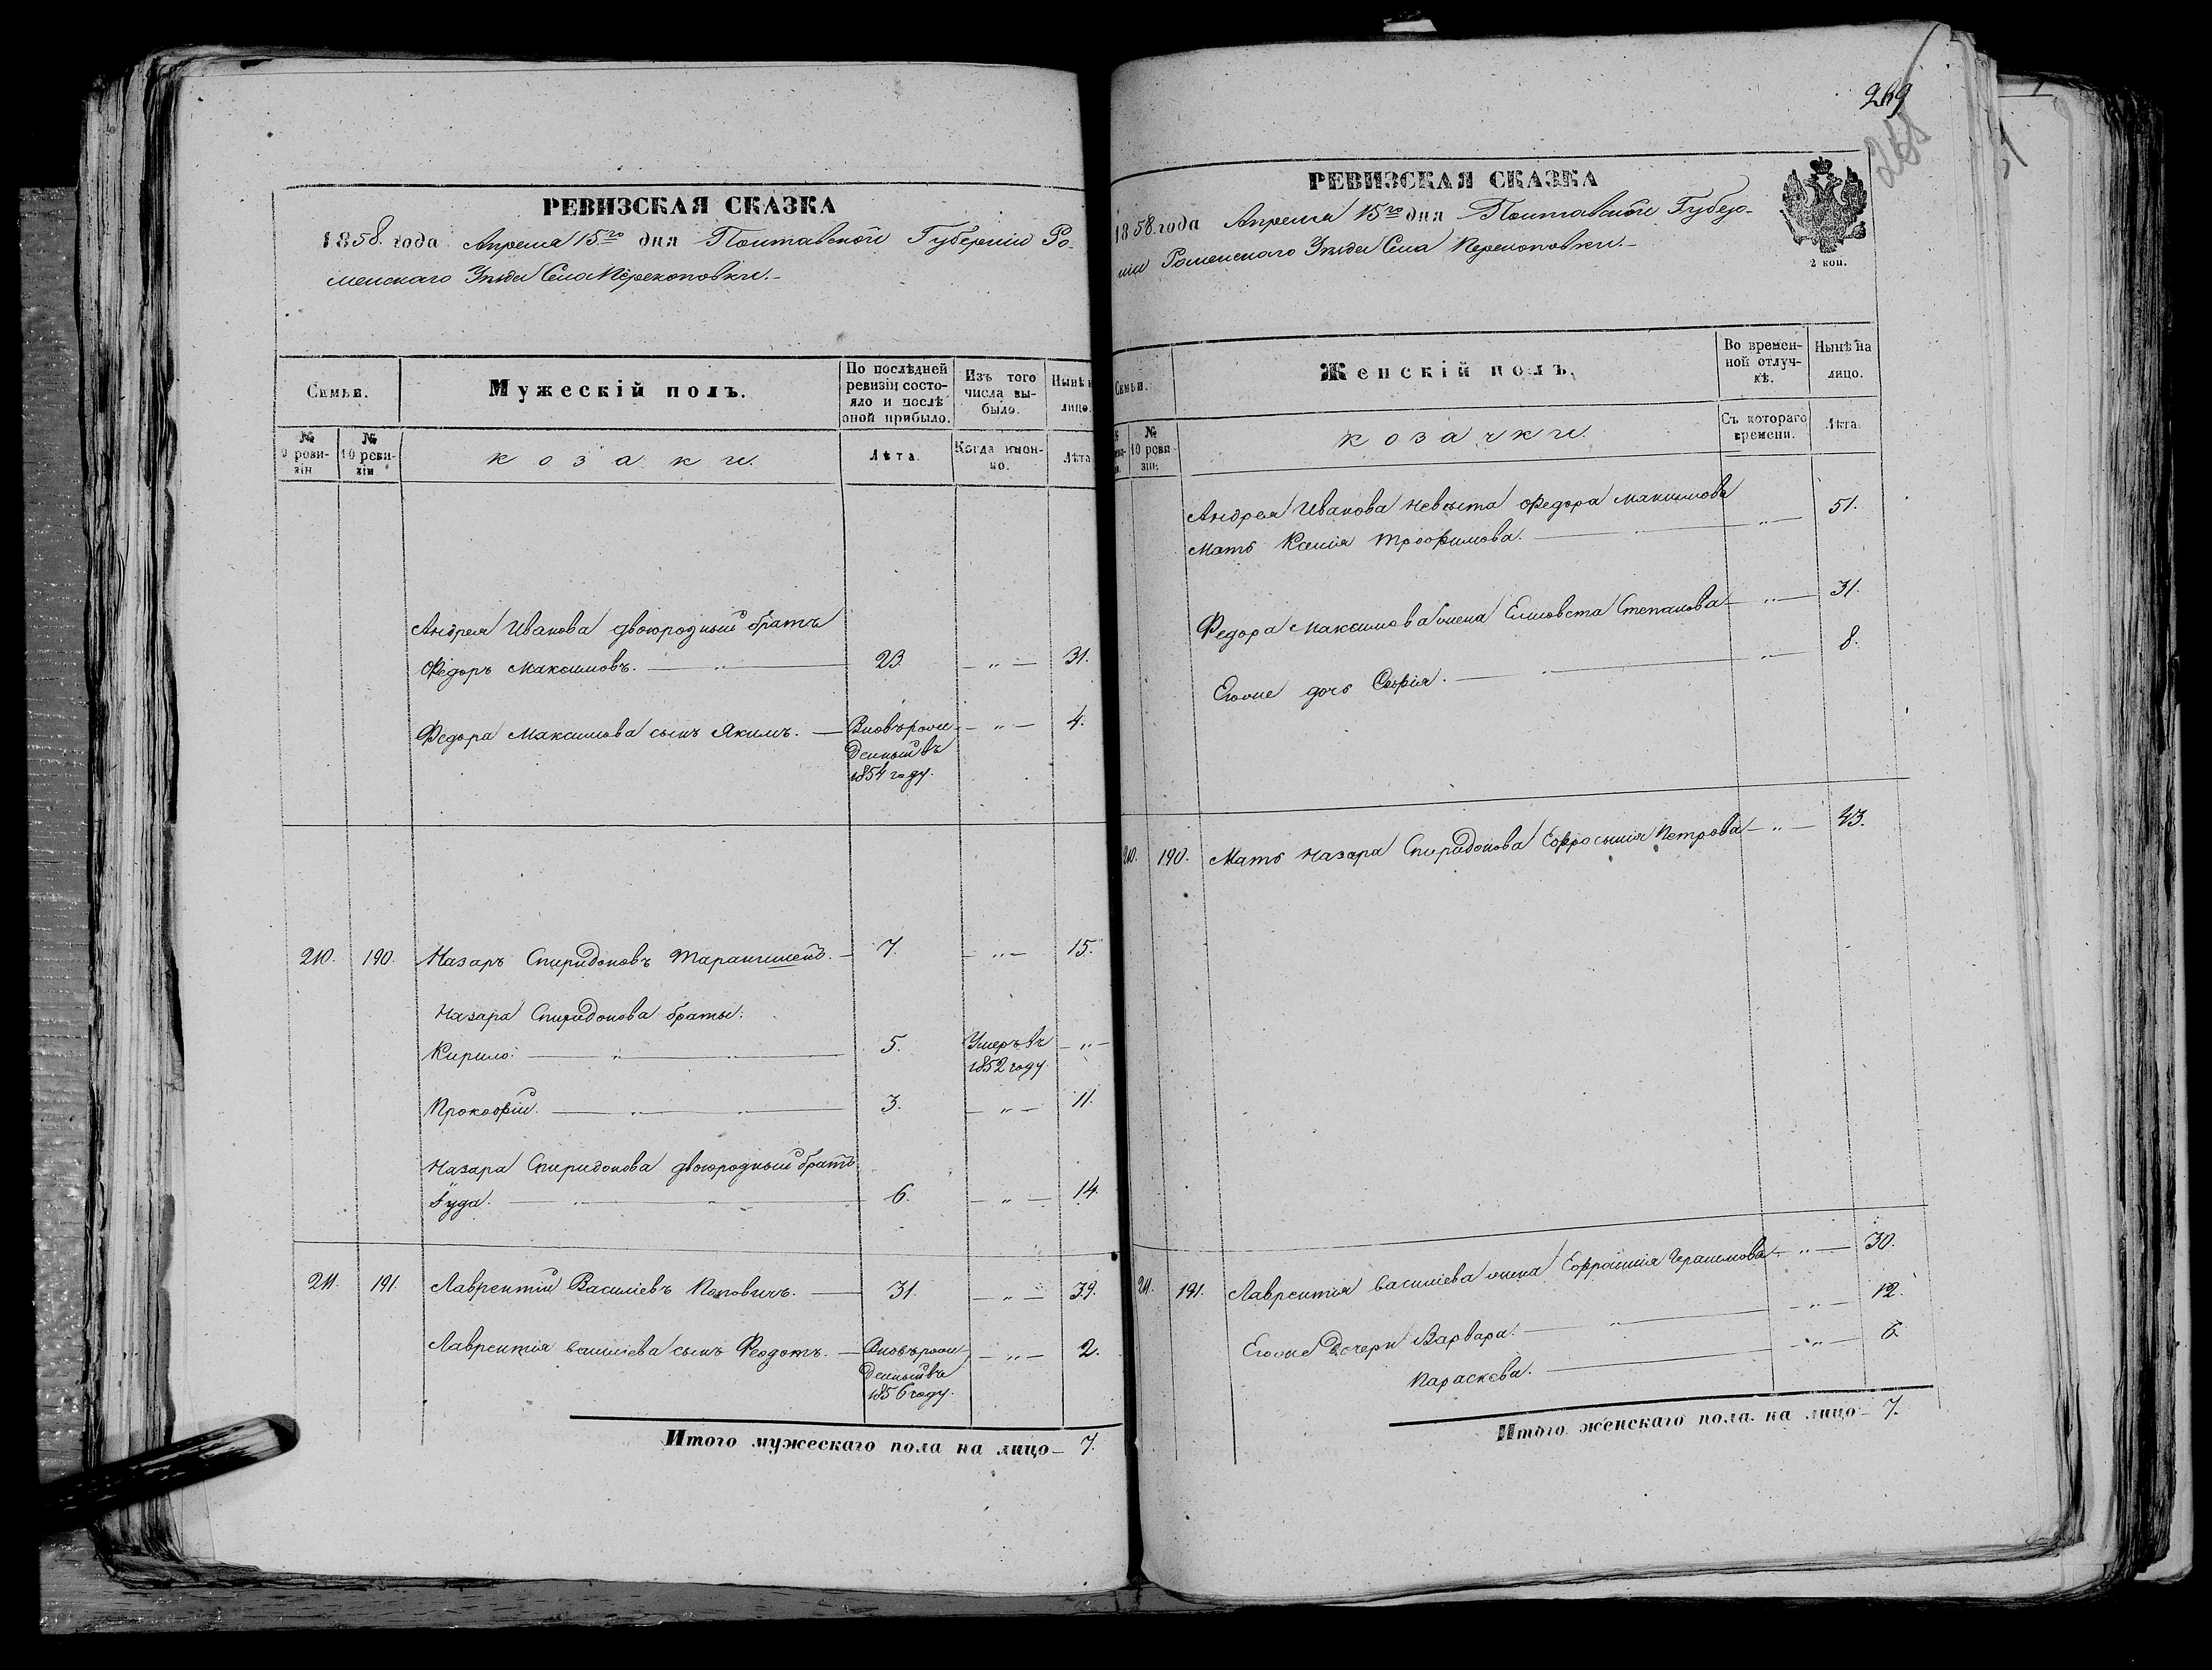 РЕВИЗСКАЯ СКАЗКА
1858. года Апреля 15го дня Полтавской Губерніи Ро-
менскаго Уѣзда Села Перекоповки.-
Семьи.
Мужескій полъ.
По послѣдней
ревизіи состо-
яло и послѣ
оной прибыло.
Изъ того
числа вы-
было.
Нынѣ
лицо.
№
реви-
зіи
№
10 реви-
зіи
козаки.
Лѣта.
Когда имен-
но.
Лѣта
Андрея Иванова двоюродный братъ
Федоръ Максимовъ. — 23. — „ — 31.
Федора Максимова сынъ Якимъ. — Вновь рож- — „ — 4.
денный въ
1854 году.
210. 190. Назаръ Спиридоновъ — 7. — „ — 15.
Назара Спиридонова братья:
Кирило. — „ — „ — 5. Умеръ въ — „ —
1852 году.
Прокофій. — „ — „ — 3. — „ — 11.
Назара Спиридонова двоюродный братъ
Іуда. — „ — „ — 6. — „ — 14.
211. 191. Лаврентій Василіевъ Поповичъ. — 31. — „ — 39.
Лаврентія Василіева сынъ Феодотъ. — Вновь рож- — „ — 2.
денный въ
1856 году.
Итого мужескаго пола на лицо — 7.
269
268
РЕВИЗСКАЯ СКАЗКА
1858. года Апреля 15го дня Полтавской Губер-
ніи Роменскаго Уѣзда Села Перекоповки.-
2 коп.
Семьи.
Женскій полъ.
Во времен-
ной отлуч-
кѣ.
Нынѣ на
лицо.
№
10 реви-
зіи.
козачки.
Съ котораго
времени.
Лѣта.
Андрея Иванова невѣста Федора Максимова
Мать Ксенія Трофимова. — „ — 51.
Федора Максимова жена Елисовета Степанова — „ — 31.
Егоже дочь Софія. — „ — „ — 8.
210. 190. Мать Назара Спиридонова Ефросинія Петрова — „ — 43.
211. 191. Лаврентія Василіева жена Ефросинія Герасимова — „ — 30.
Егоже Дочери Варвара. — „ — „ — 12.
Параскева. — „ — 6.
Итого женскаго пола на лицо — 7.